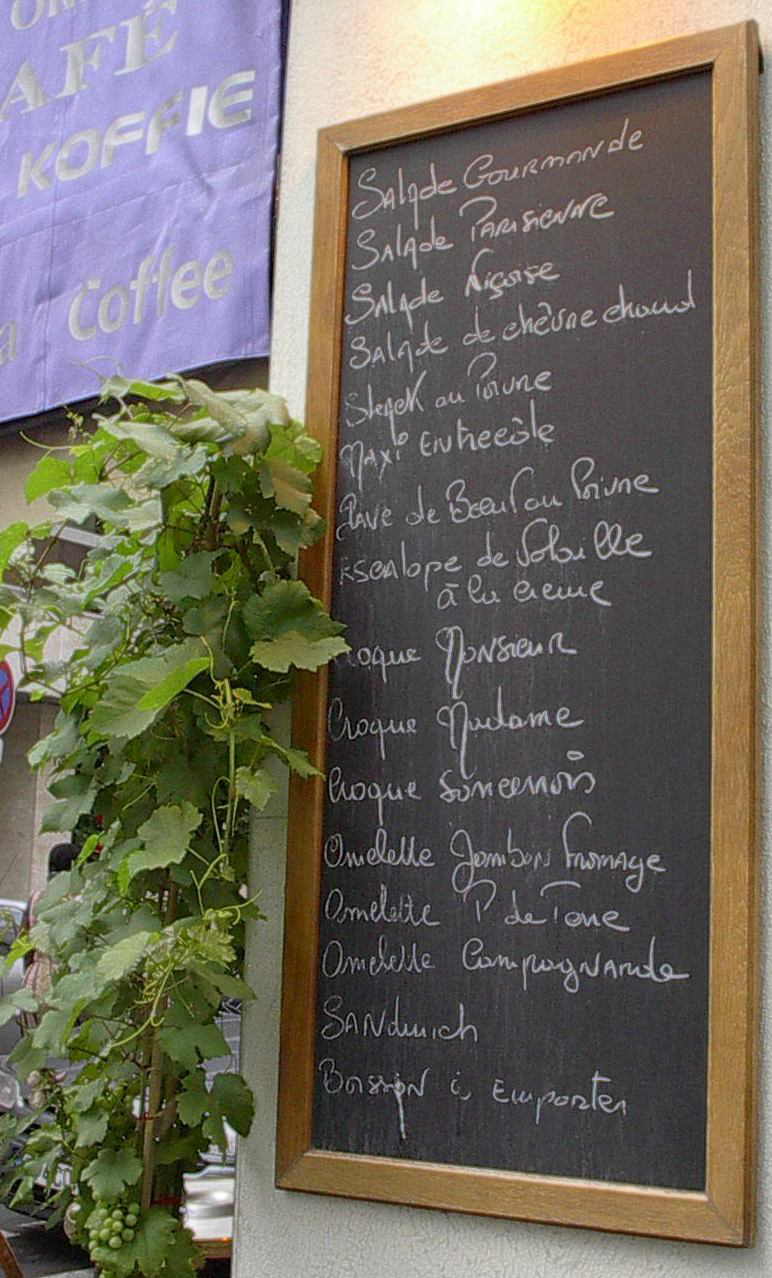 CAFÉ
KOFFIE
Coffee
Salade Gourmande
Salade Parisienne
Salade Niçoise
Salade de chèvre chaud
Steack au Poivre
Maxi Entrecôte
Pavé de Boeuf au Poivre
Escalope de Volaille
à la creme
Croque Monsieur
Croque Madame
Croque
Omelette Jambon Fromage
Omelette P de Terre
Omelette Campagnarde
Sandwich
Boisson à Emporter